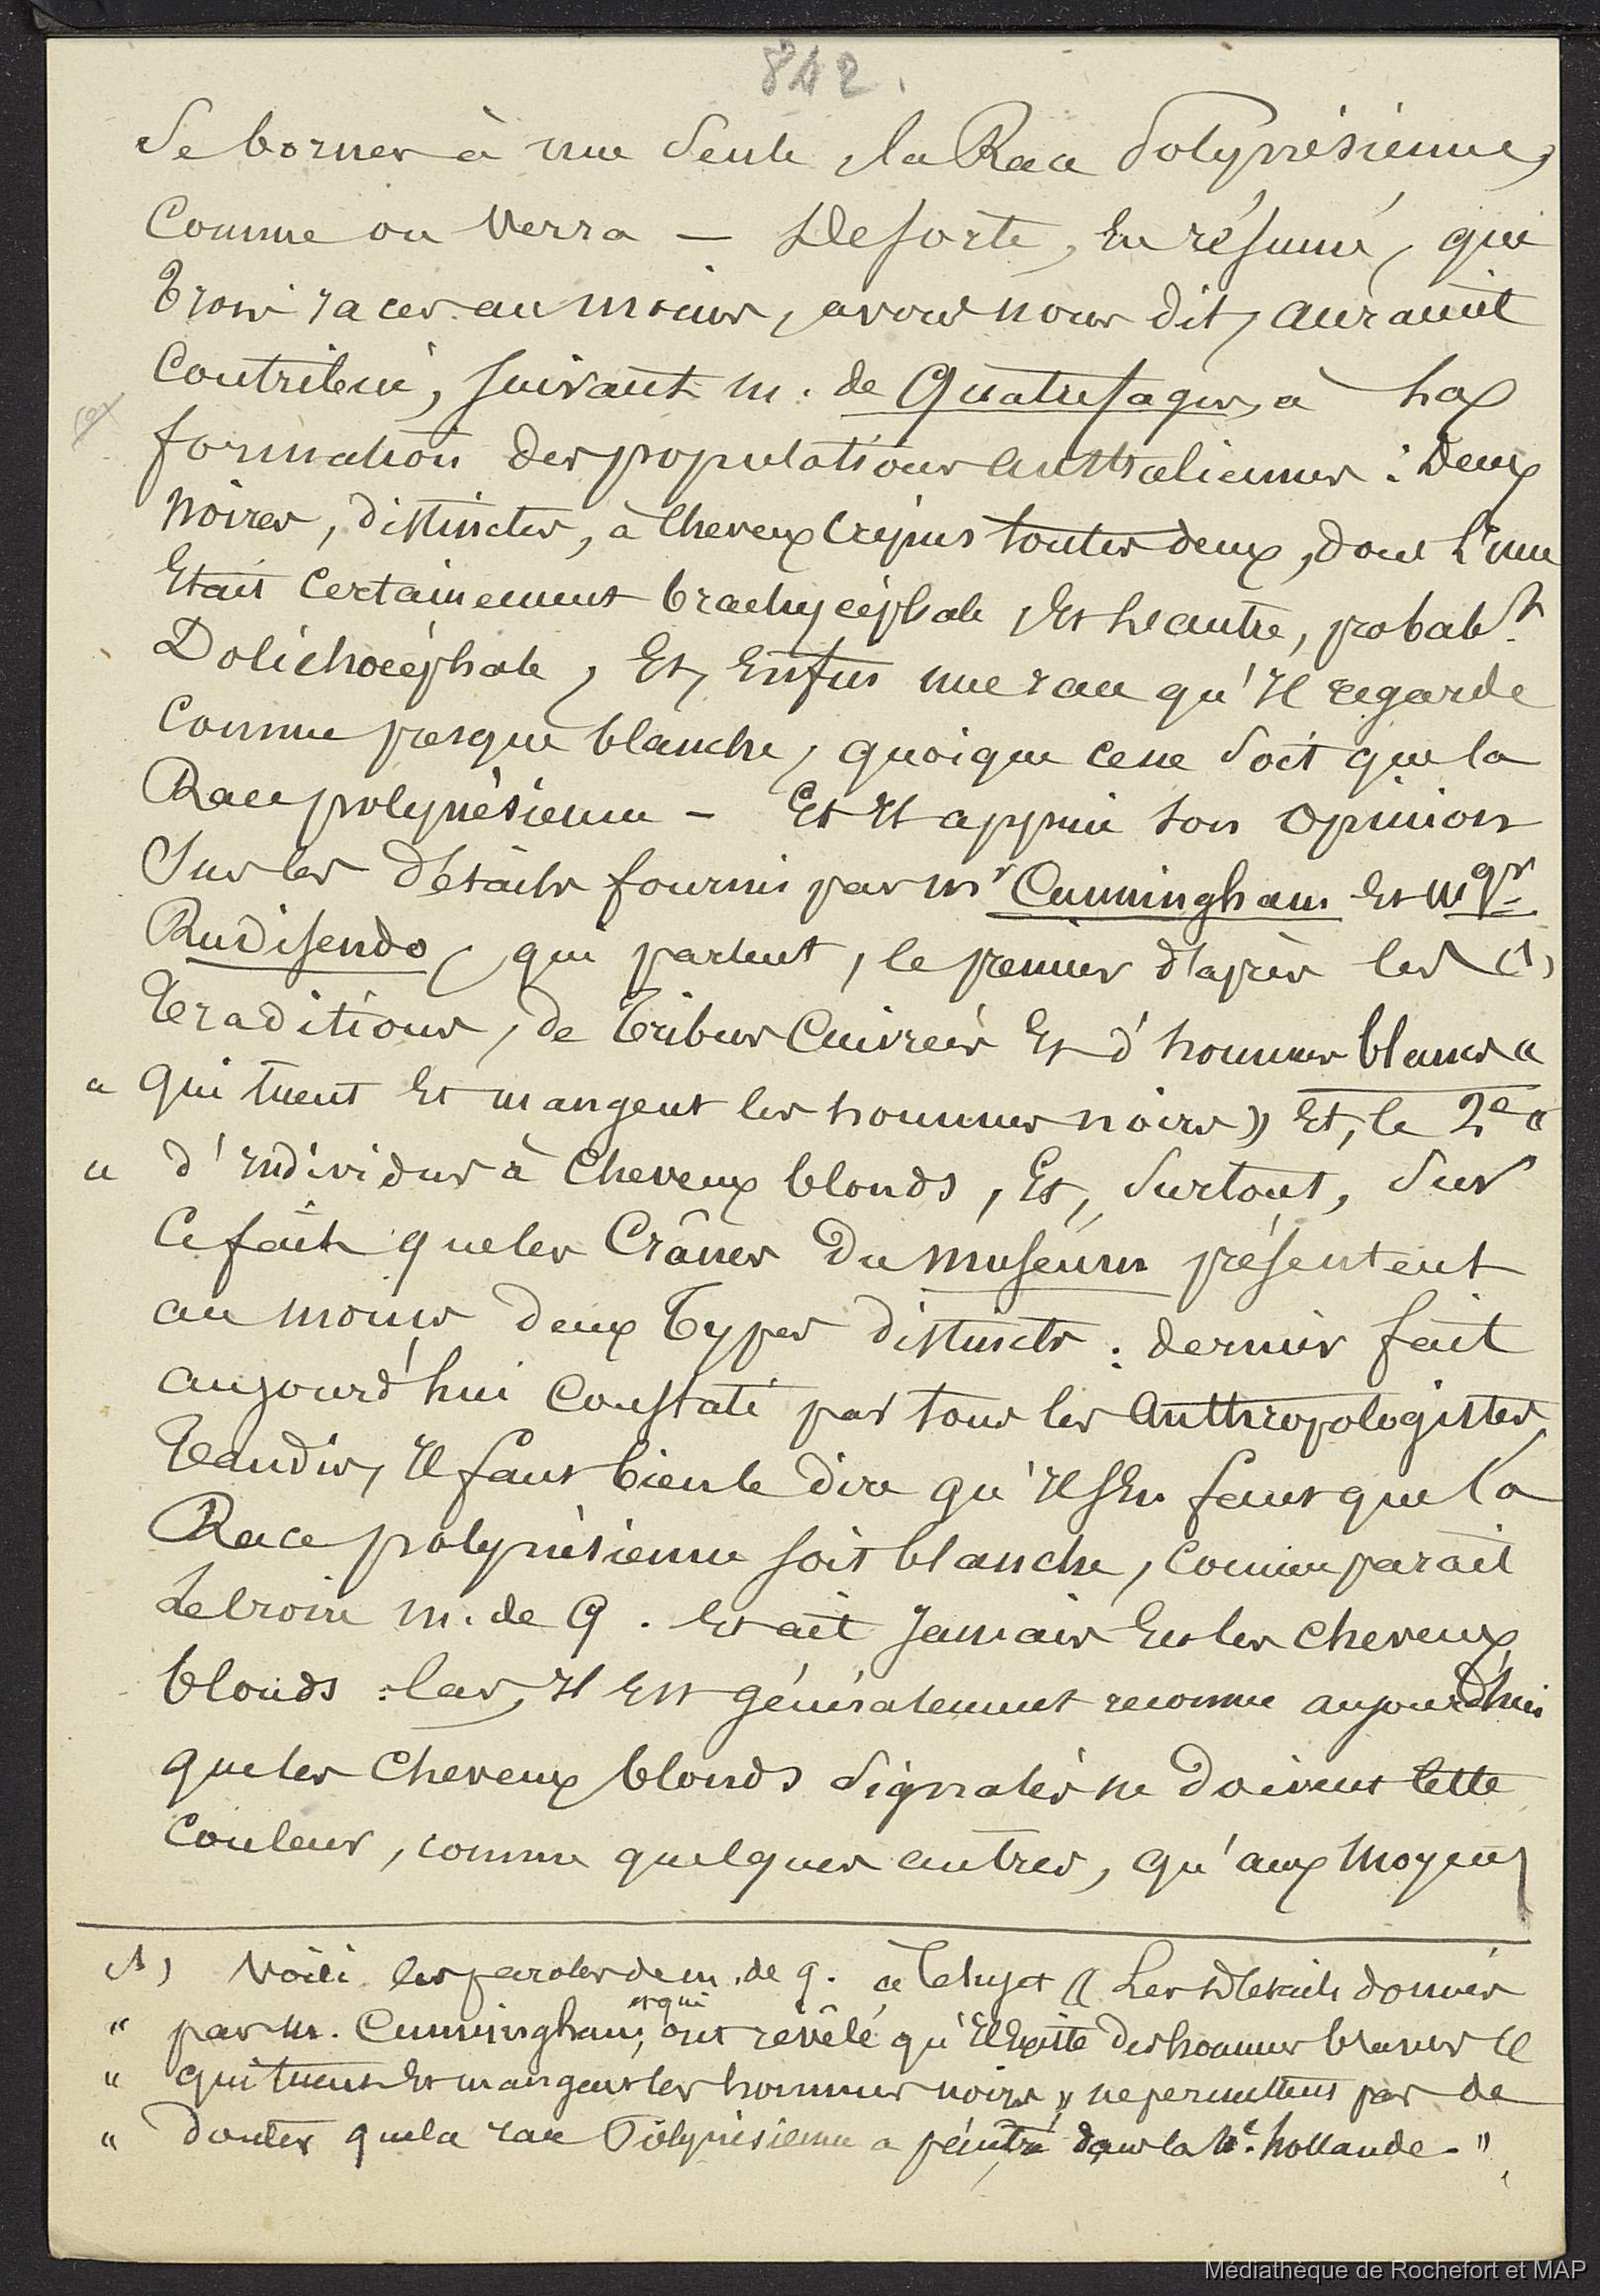 842.
Se borner à une Seule, la Race Polynésienne,
Comme on Verra — De sorte, En résumé, que
Trois races au moins, avons nous dit, auraient
Contribué, suivant m. de Quatrefages, à la
formation des populations australiennes : Deux
Noires, distinctes, à Cheveux Crépus toutes deux, dont l'une
Etait Certainement brachycéphale, Et l'autre, probabt.
Dolichocéphale, Et, Enfin une race qu'Il regarde
Comme presque blanche, quoique ce ne Soit que la
Race polynésienne — Et Il appuie son Opinion
Sur les Détails fournis par Mr Cunningham Et Mgr
Rudisendo, qui parlent, le premier d'après les (1)
Traditions, de Tribus Cuivrées Et d'hommes blancs "
" qui tuent Et mangent les hommes noirs » Et, le 2e "
" d'Individus à Cheveux blonds, Et, Surtout, Sur
Ce fait que les Crânes Du Muséum présentent
au moins Deux Types distincts : dernier fait
aujourd'hui Constaté par tous les Anthropologistes
Tandis, Il faut bien le dire qu'Il s'En faut que la
Race polynésienne soit blanche, comme paraît
Le croire M. de Q. Et ait Jamais Eu les cheveux
blonds : Car, Il Est généralement reconnu aujourd'hui
que les Cheveux blonds Signalés ne Doivent Cette
Couleur, comme quelques autres, qu'aux Moyens
(1) Voici les paroles de m. de q. à Ce Sujet « Les Détails donnés
" par m. Cunningham, et qui ont révélé qu'Il Existe des hommes blancs «
" qui tuent Et mangent les hommes noirs » ne permettent pas de
" Douter que la race Polynésienne a pénétré dans la Nle. hollande. »
Médiathèque de Rochefort et MAP